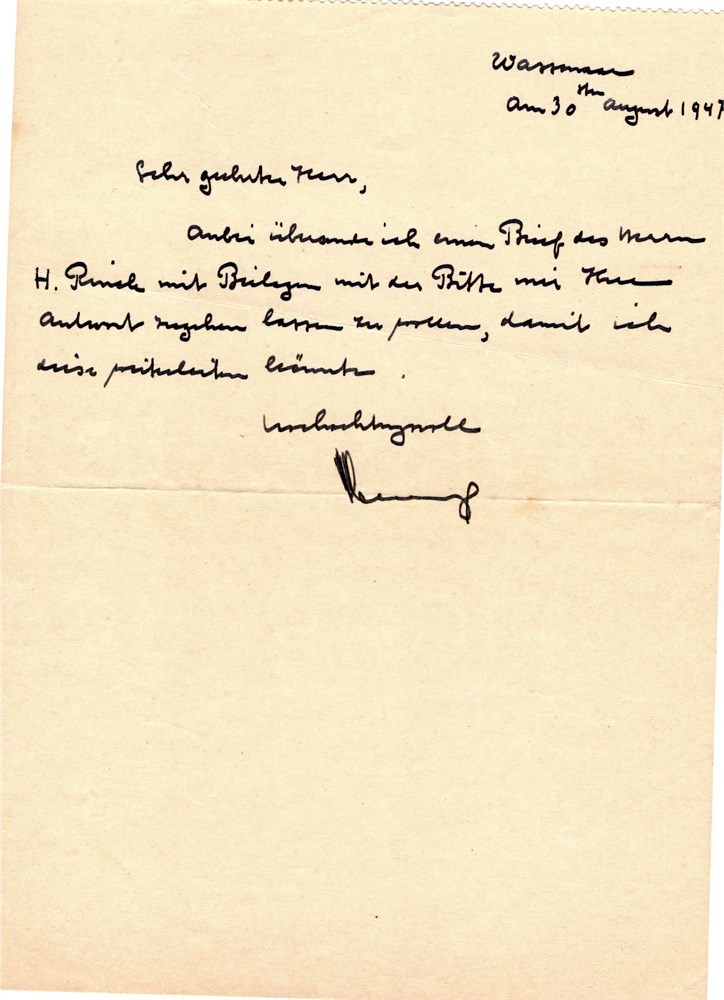 Wassenaar
am 30sten August 1947
Sehr geehrter Herr,
Anbei übersende ich einen Brief des Herrn
H. mit Beilagen mit der Bitte mir Ihre
Antwort zugehen lassen zu wollen, damit ich
diese weiterleiten könnte.
Hochachtungsvoll